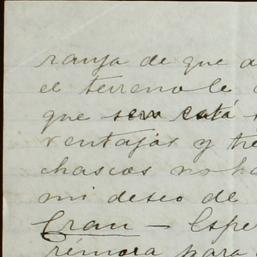 ranja de que a
el terreno le
que está
ventajas y tre
chascos no ha
mi deseo de
Gran — Espe
rémora para